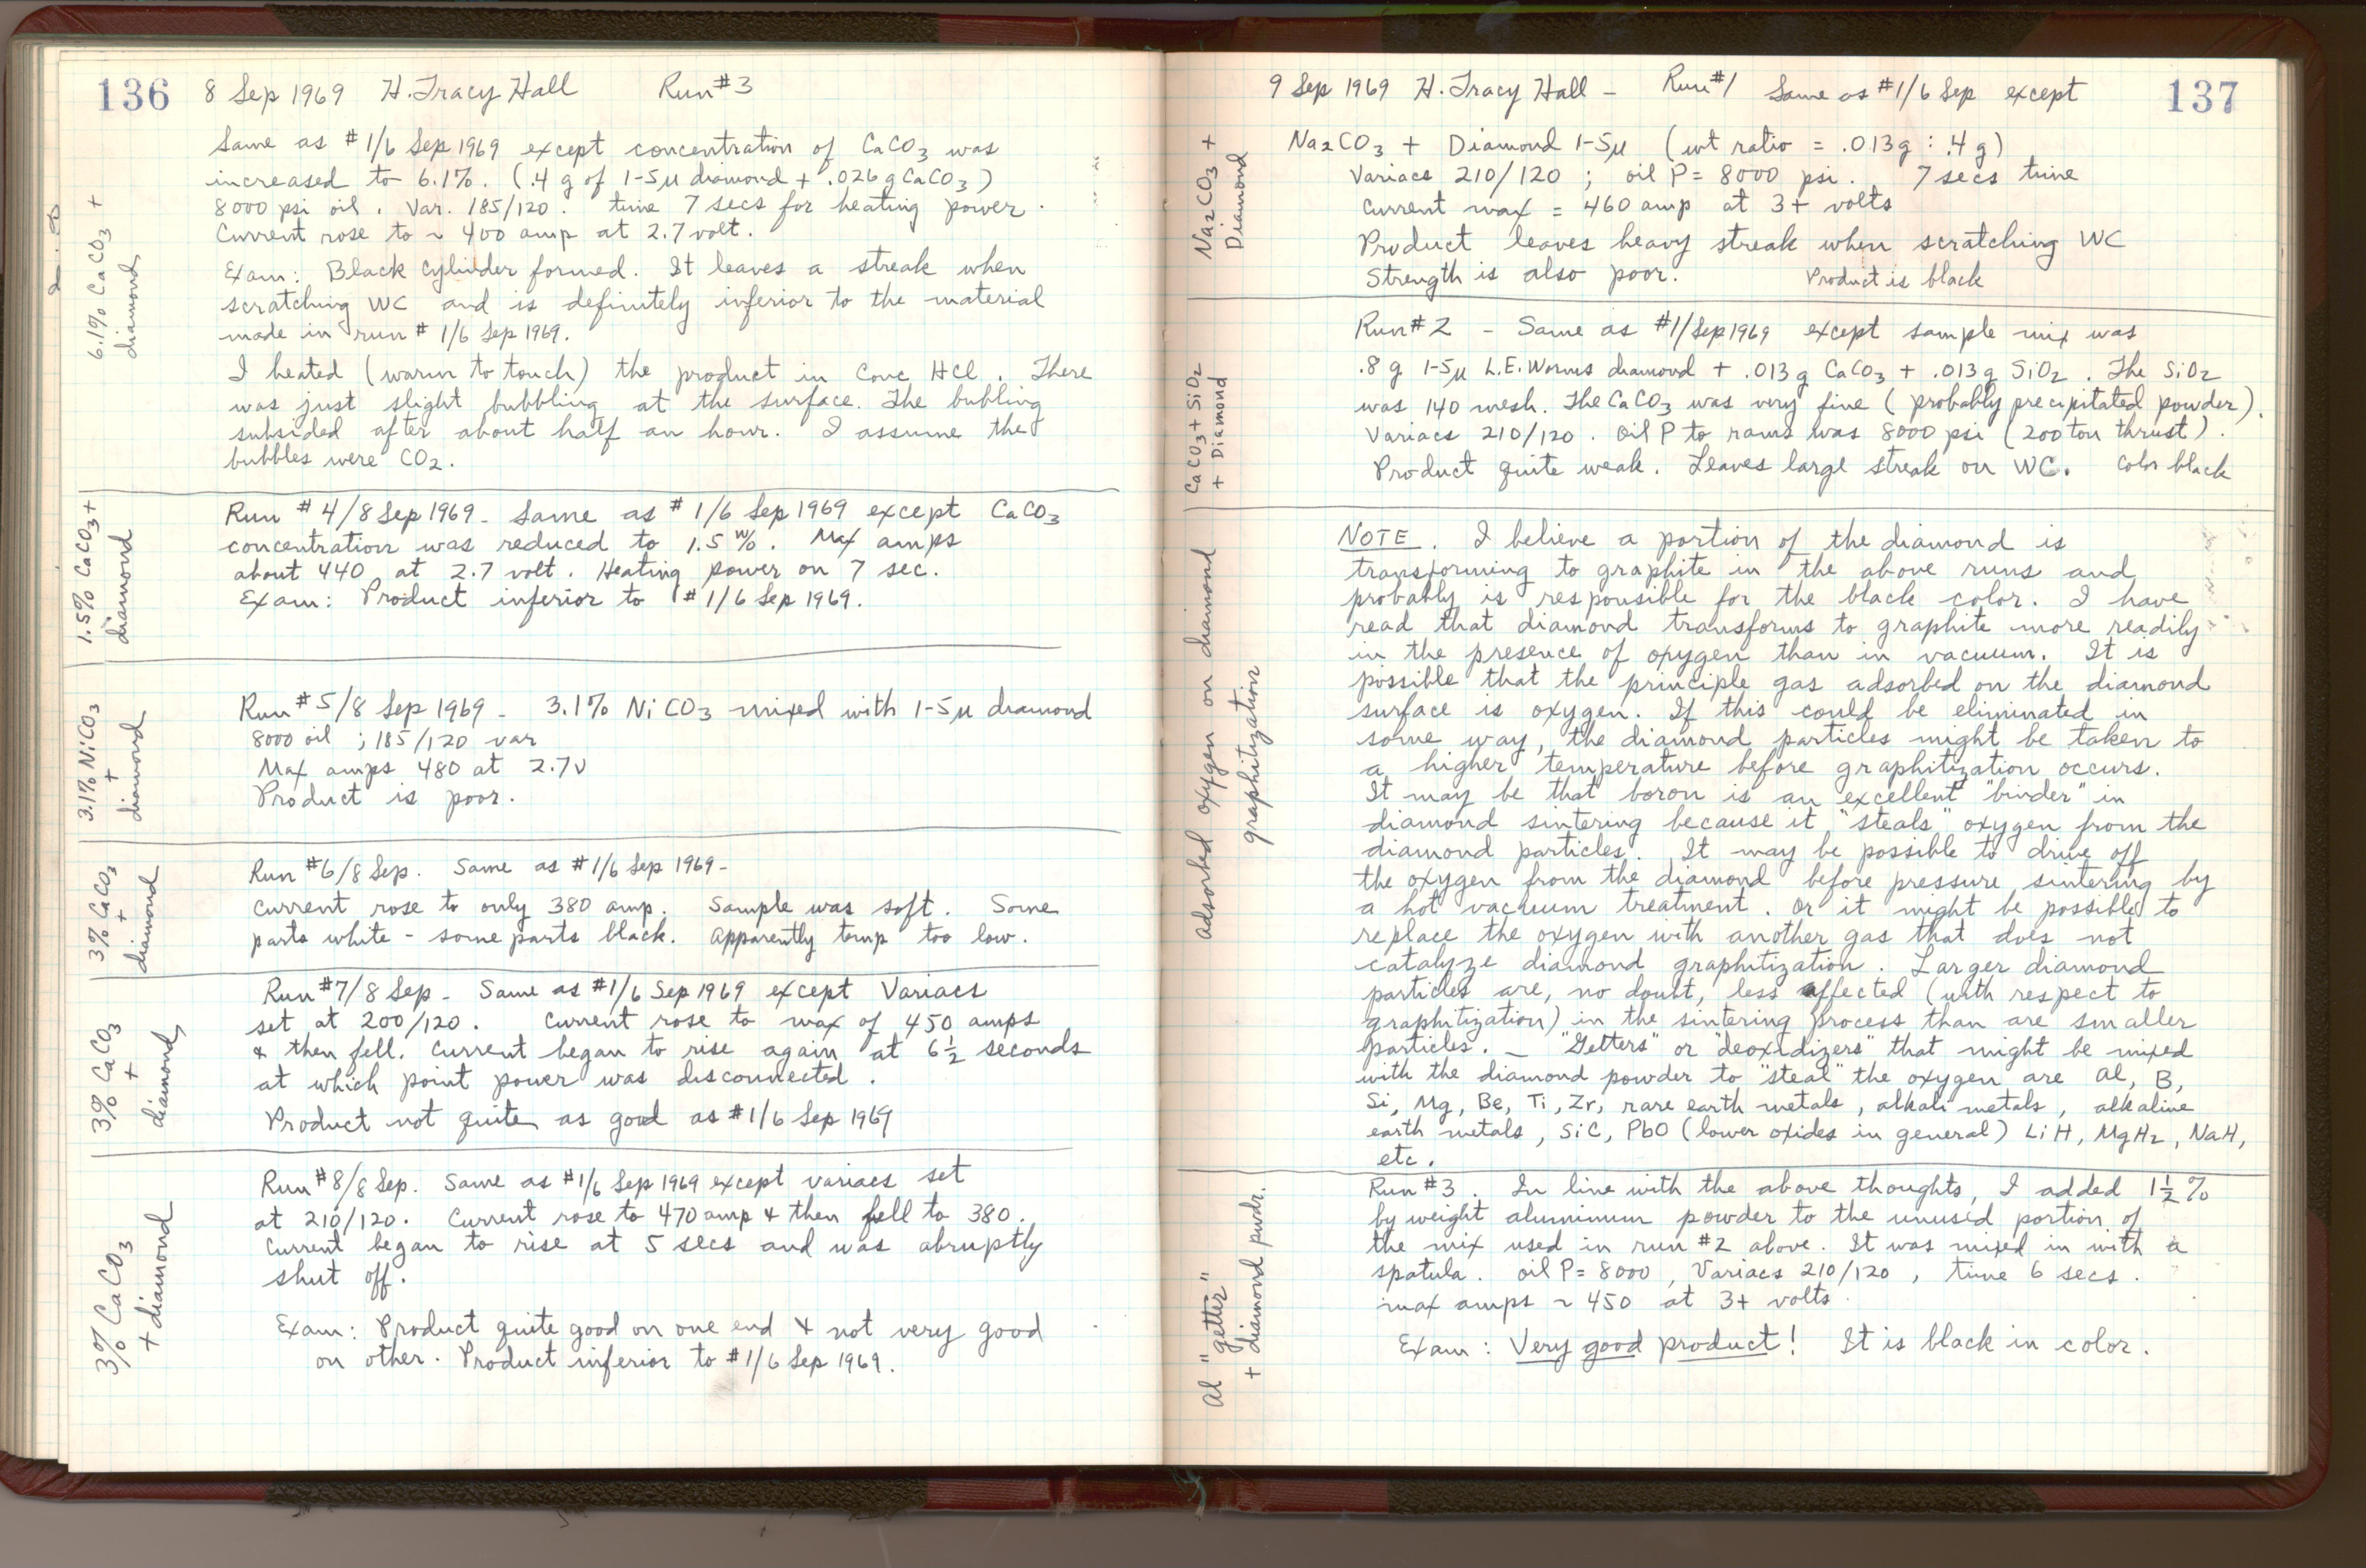 136 8 Sep 1969 H. Tracy Hall Run #3
6.1% CaCO3 +
diamond
Same as #1/6 Sep 1969 except concentration of CaCO3 was
increased to 6.1%. (.4 g of 1-5µ diamond + .026 g CaCO3)
8000 psi oil. Var. 185/120. time 7 secs for heating power.
Current rose to ~ 400 amp at 2.7 volt.
Exam: Black cylinder formed. It leaves a streak when
scratching WC and is definitely inferior to the material
made in run #1/6 Sep 1969.
I heated (warm to touch) the product in Conc HCl. There
was just slight bubbling at the surface. The bubling
subsided after about half an hour. I assume the
bubbles were CO2.
1.5% CaCO3 +
diamond
Run #4/8 Sep 1969 - Same as #1/6 Sep 1969 except CaCO3
concentration was reduced to 1.5 w%. Max amps
about 440 at 2.7 volt. Heating power on 7 sec.
Exam: Product inferior to #1/6 Sep 1969.
3.1% NiCO3
+
diamond
Run #5/8 Sep 1969 - 3.1% NiCO3 mixed with 1-5µ diamond
8000 oil ; 185/120 var
Max amps 480 at 2.7v
Product is poor.
3% CaCO3
+
diamond
Run #6/8 Sep. Same as #1/6 Sep 1969 -
Current rose to only 380 amp. Sample was soft. Some
parts white - some parts black. Apparently temp too low.
3% CaCO3
+
diamond
Run #7/8 Sep - Same as #1/6 Sep 1969 except Variacs
set at 200/120. Current rose to max of 450 amps
& then fell. Current began to rise again at 6 1/2 seconds
at which point power was disconnected.
Product not quite as good as #1/6 Sep 1969
3% CaCO3
+ diamond
Run #8/8 Sep. Same as #1/6 Sep 1969 except variacs set
at 210/120. Current rose to 470 amp & then fell to 380.
Current began to rise at 5 secs and was abruptly
shut off.
Exam: Product quite good on one end & not very good
on other. Product inferior to #1/6 Sep 1969.
9 Sep 1969 H. Tracy Hall - Run #1 Same as #1/6 Sep except 137
Na2CO3 +
Diamond
Na2CO3 + Diamond 1-5µ (wt ratio = .013g : .4 g)
Variacs 210/120 ; oil P = 8000 psi. 7 secs time
Current max = 460 amp at 3+ volts
Product leaves heavy streak when scratching WC
Strength is also poor. Product is black
CaCO3 + SiO2
+ Diamond
Run #2 - Same as #1/Sep 1969 except sample mix was
.8 g 1-5µ L.E. Worms diamond + .013 g CaCO3 + .013 g SiO2. The SiO2
was 140 mesh. The CaCO3 was very fine (probably precipitated powder).
Variacs 210/120. Oil P to rams was 8000 psi (200 ton thrust).
Product quite weak. Leaves large streak on WC. Color black
adsorbed oxygen on diamond
graphitization
NOTE. I believe a portion of the diamond is
transforming to graphite in the above runs and
probably is responsible for the black color. I have
read that diamond transforms to graphite more readily
in the presence of oxygen than in vacuum. It is
possible that the principle gas adsorbed on the diamond
surface is oxygen. If this could be eliminated in
some way, the diamond particles might be taken to
a higher temperature before graphitization occurs.
It may be that boron is an excellent "binder" in
diamond sintering because it "steals" oxygen from the
diamond particles. It may be possible to drive off
the oxygen from the diamond before pressure sintering by
a hot vacuum treatment. Or it might be possible to
replace the oxygen with another gas that does not
catalyze diamond graphitization. Larger diamond
particles are, no doubt, less affected (with respect to
graphitization) in the sintering process than are smaller
particles. - "Getters" or "deoxidizers" that might be mixed
with the diamond powder to "steal" the oxygen are Al, B,
Si, Mg, Be, Ti, Zr, rare earth metals, alkali metals, alkaline
earth metals, SiC, PbO (lower oxides in general) LiH, MgH2, NaH,
etc.
Al "getter"
+ diamond pwdr.
Run #3. In line with the above thoughts, I added 1 1/2 %
by weight aluminum powder to the unused portion of
the mix used in run #2 above. It was mixed in with a
spatula. oil P = 8000, Variacs 210/120, time 6 secs.
max amps ~ 450 at 3+ volts.
Exam: Very good product! It is black in color.